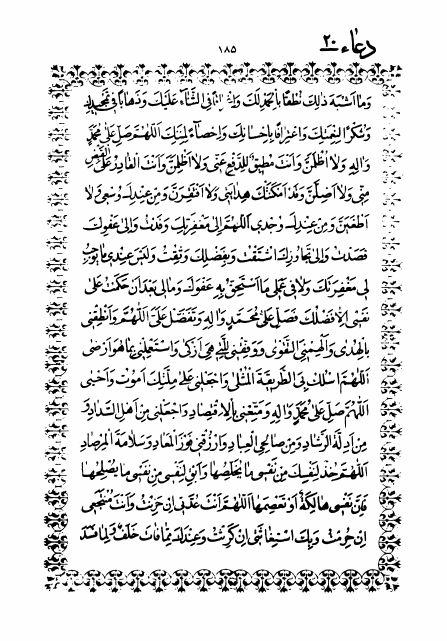 دعاء ٢٠
١٨٥
وَمَا اَشْبَهَ ذٰلِكَ نُطْقًا بِالْحَمْدِ لَكَ وَاِغْرَاقًا فِى الثَّنَاءِ عَلَيْكَ وَذَهَابًا فِى تَمْجِيدِكَ
وَشُكْرًا لِنِعْمَتِكَ وَاعْتِرَافًا بِاِحْسَانِكَ وَاِحْصَاءً لِمِنَنِكَ اَللّٰهُمَّ صَلِّ عَلٰى مُحَمَّدٍ
وَاٰلِهِ وَلَا اُظْلَمَنَّ وَاَنْتَ مُطِيقٌ لِلدَّفْعِ عَنِّى وَلَا اَظْلِمَنَّ وَاَنْتَ الْقَادِرُ عَلَى الْقَبْضِ
مِنِّى وَلَا اَضِلَّنَّ وَقَدْ اَمْكَنَتْكَ هِدَايَتِى وَلَا اَفْتَقِرَنَّ وَمِنْ عِنْدِكَ وُسْعِى وَلَا
اَطْغَيَنَّ وَمِنْ عِنْدِكَ وُجْدِى اَللّٰهُمَّ اِلٰى مَغْفِرَتِكَ وَفَدْتُ وَاِلٰى عَفْوِكَ
قَصَدْتُ وَاِلٰى تَجَاوُزِكَ اشْتَقْتُ وَبِفَضْلِكَ وَثِقْتُ وَلَيْسَ عِنْدِى مَا يُوجِبُ
لِى مَغْفِرَتَكَ وَلَا فِى عَمَلِى مَا اَسْتَحِقُّ بِهِ عَفْوَكَ وَمَا لِى بَعْدَ اَنْ حَكَمْتُ عَلٰى
نَفْسِى اِلَّا فَضْلُكَ فَصَلِّ عَلٰى مُحَمَّدٍ وَاٰلِهِ وَتَفَضَّلْ عَلَىَّ اَللّٰهُمَّ وَاَنْطِقْنِى
بِالْهُدٰى وَاَلْهِمْنِى التَّقْوٰى وَوَفِّقْنِى لِلَّتِى هِىَ اَزْكٰى وَاسْتَعْمِلْنِى بِمَا هُوَ اَرْضٰى
اَللّٰهُمَّ اسْلُكْ بِىَ الطَّرِيقَةَ الْمُثْلٰى وَاجْعَلْنِى عَلٰى مِلَّتِكَ اَمُوتُ وَاَحْيٰى
اَللّٰهُمَّ صَلِّ عَلٰى مُحَمَّدٍ وَاٰلِهِ وَمَتِّعْنِى بِالْاِقْتِصَادِ وَاجْعَلْنِى مِنْ اَهْلِ السَّدَادِ وَ
مِنْ اَدِلَّةِ الرَّشَادِ وَمِنْ صَالِحِى الْعِبَادِ وَارْزُقْنِى فَوْزَ الْمَعَادِ وَسَلَامَةَ الْمِرْصَادِ
اَللّٰهُمَّ خُذْ لِنَفْسِكَ مِنْ نَفْسِى مَا يُخَلِّصُهَا وَاَبْقِ لِنَفْسِى مِنْ نَفْسِى مَا يُصْلِحُهَا
فَاِنَّ نَفْسِى هَالِكَةٌ اَوْ تَعْصِمَهَا اَللّٰهُمَّ اَنْتَ عُدَّتِى اِنْ حَزِنْتُ وَاَنْتَ مُنْتَجَعِى
اِنْ حُرِمْتُ وَبِكَ اسْتِغَاثَتِى اِنْ كَرِثْتُ وَعِنْدَكَ مِمَّا فَاتَ خَلَفٌ وَلِمَا فَسَدَ